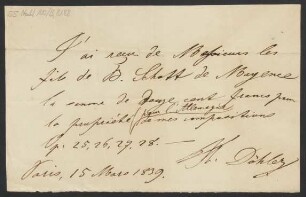 J'ai reçu de Messieurs les
fils de B. Schott de Mayence
la somme de Douze cent francs pour
la propriété (pour l'Allemagne) de mes compositions
Op. 25, 26, 27, 28. —
Th. Döhler
Paris, 15 Mars 1839.